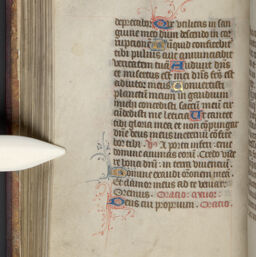 deprecabor Que utilitas in san
guine meo dum descendo in cor
ruptione Nuquid confitebit
tibi pulvis aut annunciabit
veritatem tua Audivit dns
et misertus est mei dns fcs est
adiutor meus Convertisti
planctu meum in gaudium
michi concidisti saccu meu et
cudedisti me leticia Ut cantet
tibi gloria mea et non copungar
dne deus meus in eternu cofite
bor tibi A porta inferi erue
domine animas eoru Credo vide
re bona dni in terra viventiu
Domine exaudi oronem mea
Et clamor meus ad te veniat
Oremus Oracio
Deus cui proprium Oracio